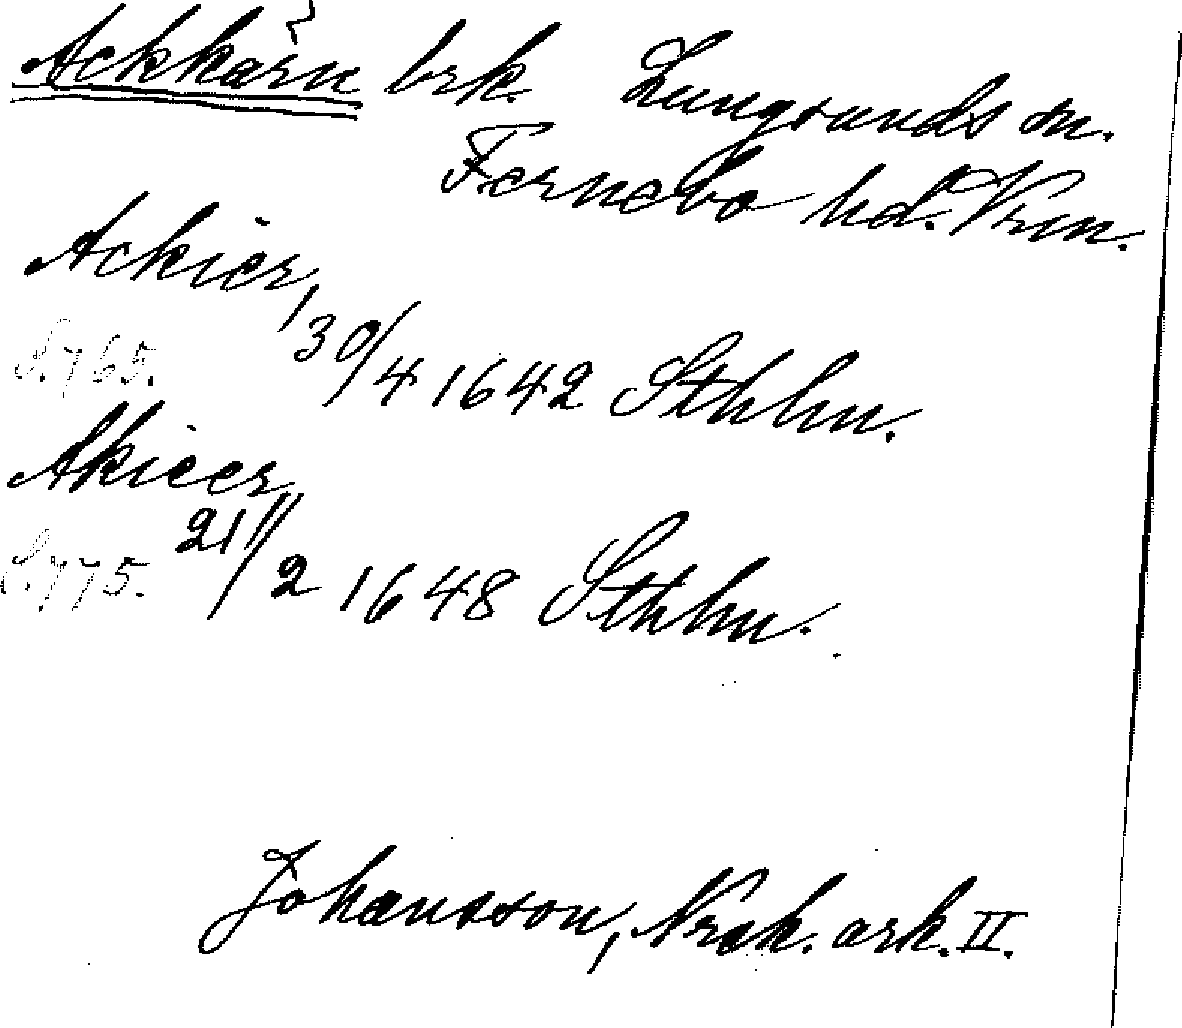 Ackkärn brk. Lungsunds sn.
Fernebo hd. Vrm.
Ackier,
S. 765. 30/4 1642 Sthlm.
Akieer,
S. 775. 21/2 1648 Sthlm.
Johansson, Nrak. ark. II.